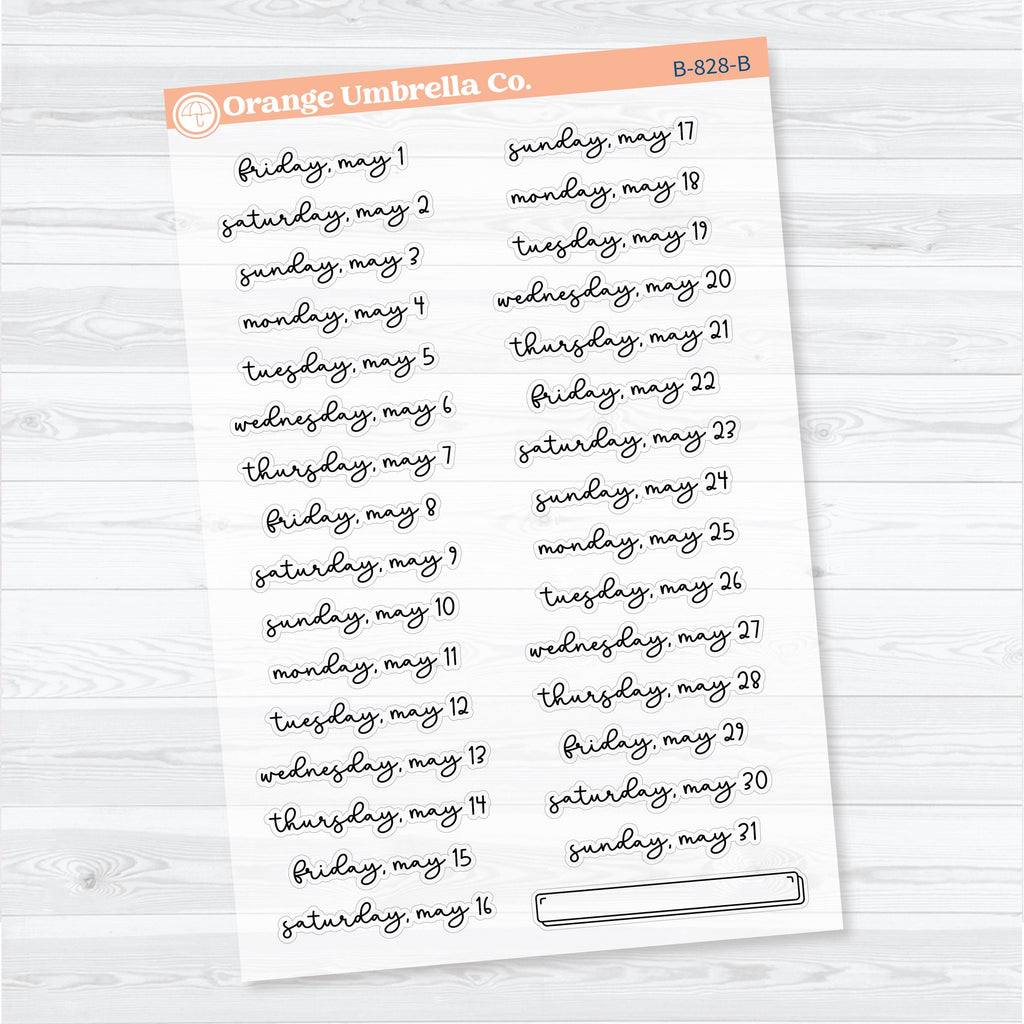 Orange Umbrella Co.
B-828-B
friday, may 1
saturday, may 2
sunday, may 3
monday, may 4
tuesday, may 5
wednesday, may 6
thursday, may 7
friday, may 8
saturday, may 9
sunday, may 10
monday, may 11
tuesday, may 12
wednesday, may 13
thursday, may 14
friday, may 15
saturday, may 16
sunday, may 17
monday, may 18
tuesday, may 19
wednesday, may 20
thursday, may 21
friday, may 22
saturday, may 23
sunday, may 24
monday, may 25
tuesday, may 26
wednesday, may 27
thursday, may 28
friday, may 29
saturday, may 30
sunday, may 31